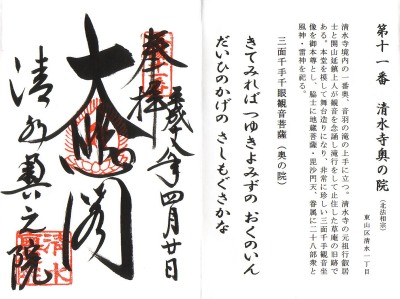 第十一番 清水寺奥の院
(北法相宗)
東山区清水一丁目
清水寺境内の一番奥、音羽の滝の上手に立つ。清水寺の元祖行叡居
士と開山延鎮上人が観音を念誦し滝行をして止住した草庵の旧跡で
ある。本堂を模して舞台造りになり、非常に珍しい三面千手観音坐
像を御本尊とし、脇士に地蔵菩薩・毘沙門天、眷属に二十八部衆と
風神・雷神を祀る。
三面千手千眼観音菩薩(奥の院)
きてみればつゆきよみずの おくのいん
だいひのかげの さしもぐさかな
奉拝
平成十八年四月廿日
大悲閣
清水奥之院